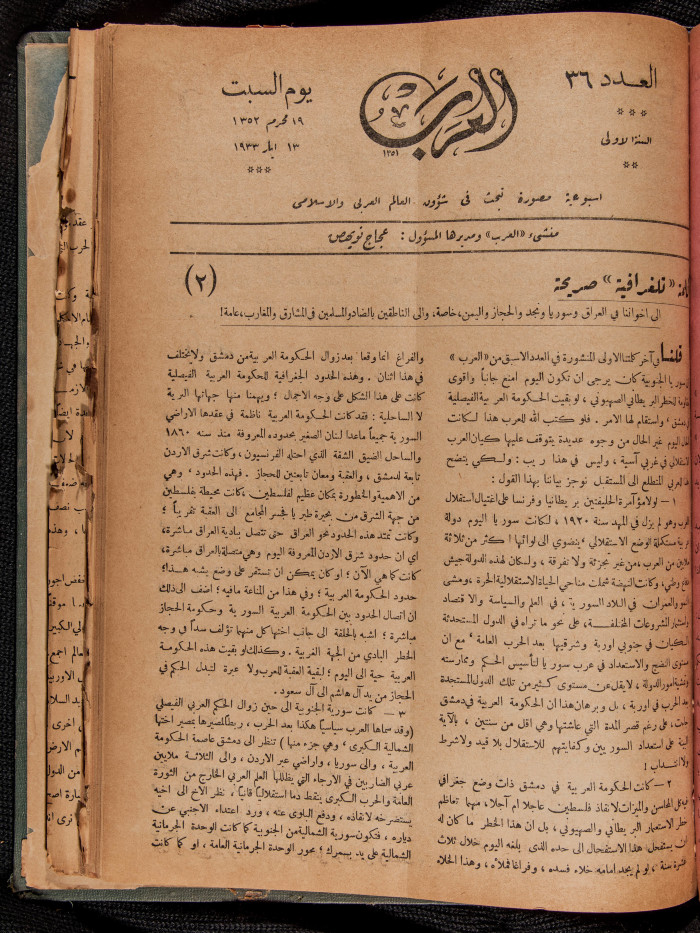 العدد ٣٦
السنة الاولى
العرب
١٣٥١
يوم السبت
١٩ محرم ١٣٥٢
١٣ ايار ١٩٣٣
اسبوعية مصورة تبحث فى شؤون العالم العربى والاسلامى
منشىء «العرب» ومديرها المسؤول : عجاج نويهض
«تلغرافية» صريحة
(٢)
الى اخواننا في العراق وسوريا ونجد والحجاز واليمن، خاصة، والى الناطقين بالضاد والمسلمين في المشارق والمغارب، عامة!
قلنا في آخر كلمتنا الاولى المنشورة في العدد الاسبق من «العرب»
سوريا الجنوبية كان يرجى ان تكون اليوم امنع جانباً واقوى
للخطر البريطاني الصهيوني، لو بقيت الحكومة العربية الفيصلية
دمشق، واستقام لها الامر. فلو كتب الله للعرب هذا لكانت
اليوم غير الحال من وجوه عديدة يتوقف عليها كيان العرب
الاستقلالي في غربي آسية، وليس في هذا ريب: ولكي يتضح
العربي المتطلع الى المستقبل نوجز بياننا بهذا القول:
١ – لولا مؤآمرة الحليفتين بريطانيا وفرنسا على اغتيال استقلال
العرب وهو لم يزل في المهد سنة ١٩٢٠، لكانت سوريا اليوم دولة
عربية مستكملة الوضع الاستقلالي، ينضوي الى لوائها اكثر من ثلاثة
ملايين من العرب، من غير تجزئة ولا تفرقة، ولكان لهذه الدولة جيش
وطني، وكانت النهضة شملت مناحي الحياة الاستقلالية الحرة، ومشى
والعمران في البلاد السورية، في العلم والسياسة والاقتصاد
واستثمار المشروعات المختلفة، على نحو ما تراه في الدول المستحدثة
الكيان في جنوبي اوربة وشرقيها بعد الحرب العامة، مع ان
مستوى النضج والاستعداد في عرب سوريا لتأسيس الحكم وممارسته
امور الدولة، لا يقل عن مستوى كثير من تلك الدول المستجدة
بعد الحرب في اوربة، بل وبرهان هذا ان الحكومة العربية في دمشق
على رغم قصر المدة التي عاشتها وهي اقل من سنتين، بالآية
على استعداد السوريين وكفايتهم للاستقلال بلا قيد ولا شرط
ولا انتداب!
٢ – كانت الحكومة العربية في دمشق ذات وضع جغرافي
المحاسن والميزات لانقاذ فلسطين عاجلا ام آجلا، مهما تعاظم
خطر الاستعمار البريطاني والصهيوني، بل ان هذا الخطر ما كان له
ان يستفحل هذا الاستفحال الى حده الذي بلغه اليوم خلال ثلاث
عشرة سنة، لو لم يجد امامه خلاء فسده، وفراغا فملأه، وهذا الخلاء
والفراغ انما وقعا بعد زوال الحكومة العربية من دمشق ولا يختلف
في هذا اثنان. وهذه الحدود الجغرافية للحكومة العربية الفيصلية
كانت على هذا الشكل على وجه الاجمال؛ ويهمنا منها جهاتها البرية
لا الساحلية: فقد كانت الحكومة العربية ناظمة في عقدها الاراضي
السورية جميعاً ماعدا لبنان الصغير بحدوده المعروفة منذ سنه ١٨٦٠
والساحل الضيق الشقة الذي احتله الفرنسيون، وكانت شرق الاردن
تابعة لدمشق، والعقبة ومعان تابعتين للحجاز. فهذه الحدود، وهي
من الاهمية والخطورة بمكان عظيم لفلسطين، كانت محيطة بفلسطين
من جهة الشرق من بحيرة طبريا فجسر المجامع الى العقبة تقريباً؛
وكانت تمتد هذه الحدود نحو العراق حتى تتصل ببادية العراق مباشرة،
اي ان حدود شرق الاردن المعروفة اليوم وهي متصلة بالعراق مباشرة،
كانت كما هي الآن؛ او كان يمكن ان تستقر على وضع يشبه هذا؛
حدود الحكومة العربية؛ وفي هذا من المناعة مافيه؛ اضف الى ذلك
ان اتصال الحدود بين الحكومة العربية السورية وحكومة الحجاز
مباشرة؛ اشبه بالحلقة الى جانب اختها كل منهما تؤلف سداً في وجه
الخطر البادي من الجهة الغربية. وكذلك لو بقيت هذه الحكومة
العربية حية الى اليوم؛ لبقية العقبة للعرب ولا عبرة لتبدل الحكم في
الحجاز من يد آل هاشم الى آل سعود.
٣ – كانت سورية الجنوبية الى حين زوال الحكم العربي الفيصلي
(وقد سماها العرب سياسياً هكذا بعد الحرب، ربطا لمصيرها بمصير اختها
الشمالية الكبرى، وهي جزء منها) تنظر الى دمشق عاصمة الحكومة
العربية، والى سوريا، واراضي عبر الاردن، والى الثلاثة ملايين
عربي الضاربين في الارجاء التي يظللها العلم العربي الخارج من الثورة
العامة والحرب الكبرى ينقط دما استقلالياً قانياً، نظر الاخ الى اخيه
يستصرخه لانقاذه، ودفع البلوى عنه، ورد اعتداء الاجنبي عن
دياره، فتكون سورية الشمالية من الجنوبية كما كانت الوحدة الجرمانية
الشمالية على يد بسمرك؛ محور الوحدة الجرمانية العامة، او كما كانت